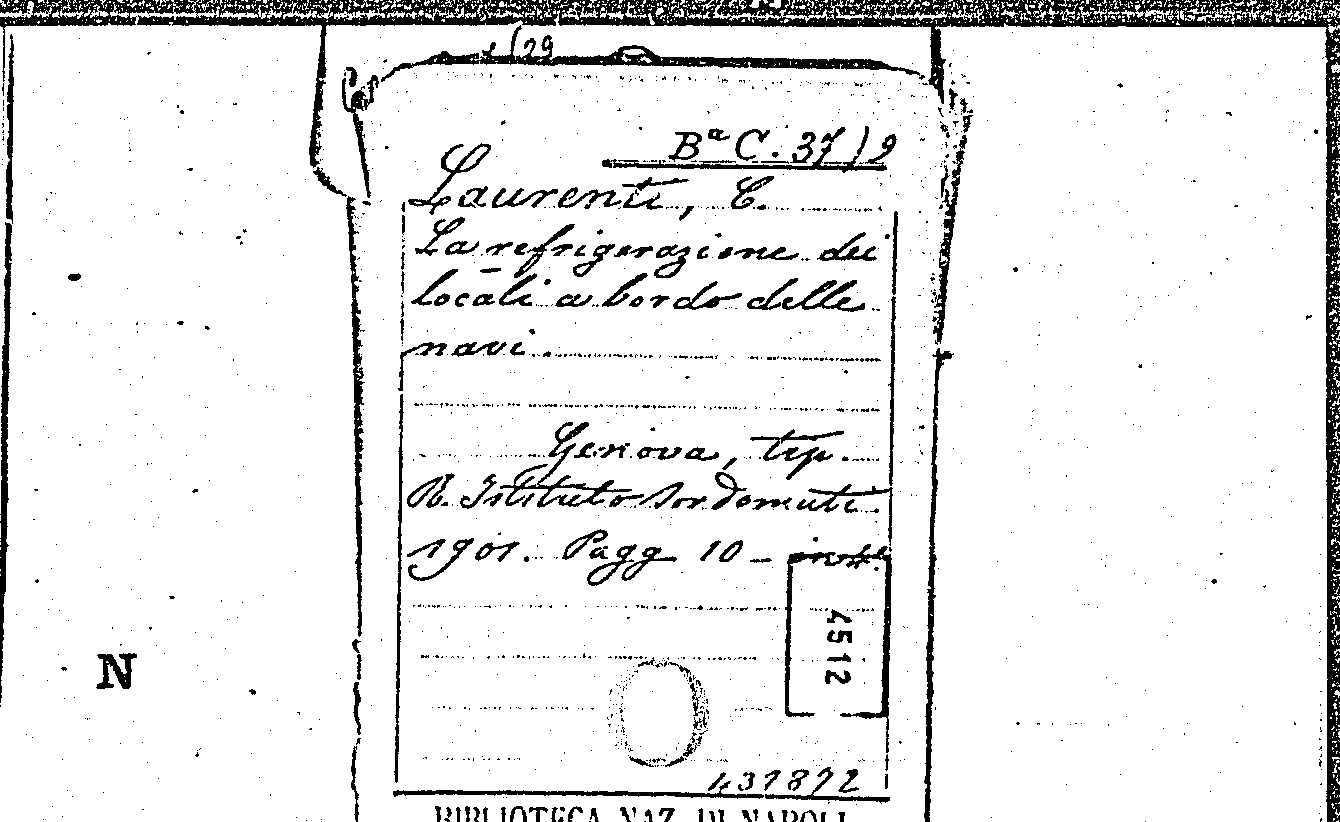 Bª C. 37)9
Laurenti, C.
La refrigerazione dei
locali a bordo delle
navi.
Genova, tip.
R. Istituto Sordomuti.
1901. Pagg 10 – in 4°.
4512
N
437872
BIBLIOTECA NAZ. DI NAPOLI